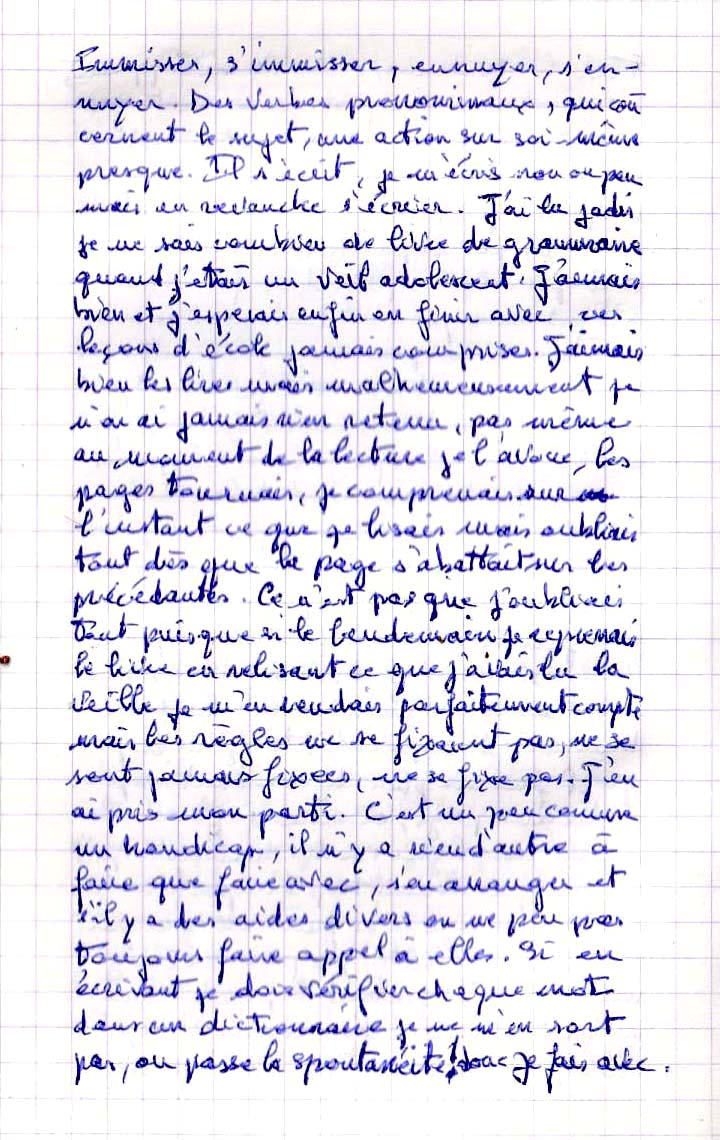 Immisser, s'immisser, ennuyer, s'en-
nuyer. Des verbes pronominaux, qui con
cernent le sujet, une action sur soi-même
presque. Il s'écrit, je m'écris non ou peu
mais en revanche s'écrier. J'ai lu jadis
je ne sais combien de livre de grammaire
quand j'étais un vert adolescent. J'aimais
bien et j'esperais enfin en finir avec ces
leçons d'école jamais comprises. J'aimais
bien les livres mais malheureusement je
n'en ai jamais rien retenu, pas même
au moment de la lecture je l'avoue, les
pages tournais, je comprenais sur
l'instant ce que je lisais mais oubliais
tout dès que la page s'abattait sur les
précédantes. Ce n'est pas que j'oubliais
tout puisque si le lendemain je reprenais
le livre en relisant ce que j'avais lu la
veille je m'en rendais parfaitement compte
mais les règles ne se fixaient pas, ne se
sont jamais fixées, ne se fixe pas. J'en
ai pris mon parti. C'est un peu comme
un handicap, il n'y a rien d'autre à
faire que faire avec, s'en arranger et
s'il y a des aides divers on ne peu pas
toujours faire appel à elles. Si en
écrivant je dois vérifier chaque mot
dans un dictionnaire je ne m'en sort
pas, ou passe la spontanéité, donc je fais avec.